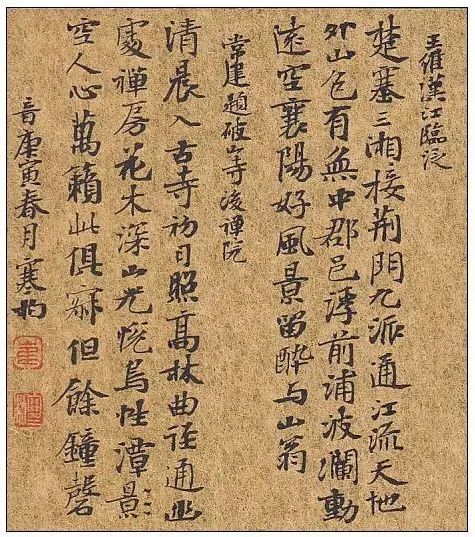 王維漢江臨泛
楚塞三湘接荆門九派通江流天地
外山色有無中郡邑浮前浦波瀾動
遠空襄陽好風景留醉与山翁
常建題破山寺後禪院
清晨入古寺初日照高林曲径通幽
處禪房花木深山光悦鳥性潭影
空人心萬籟此俱寂但餘鐘磬
音庚寅春月寒